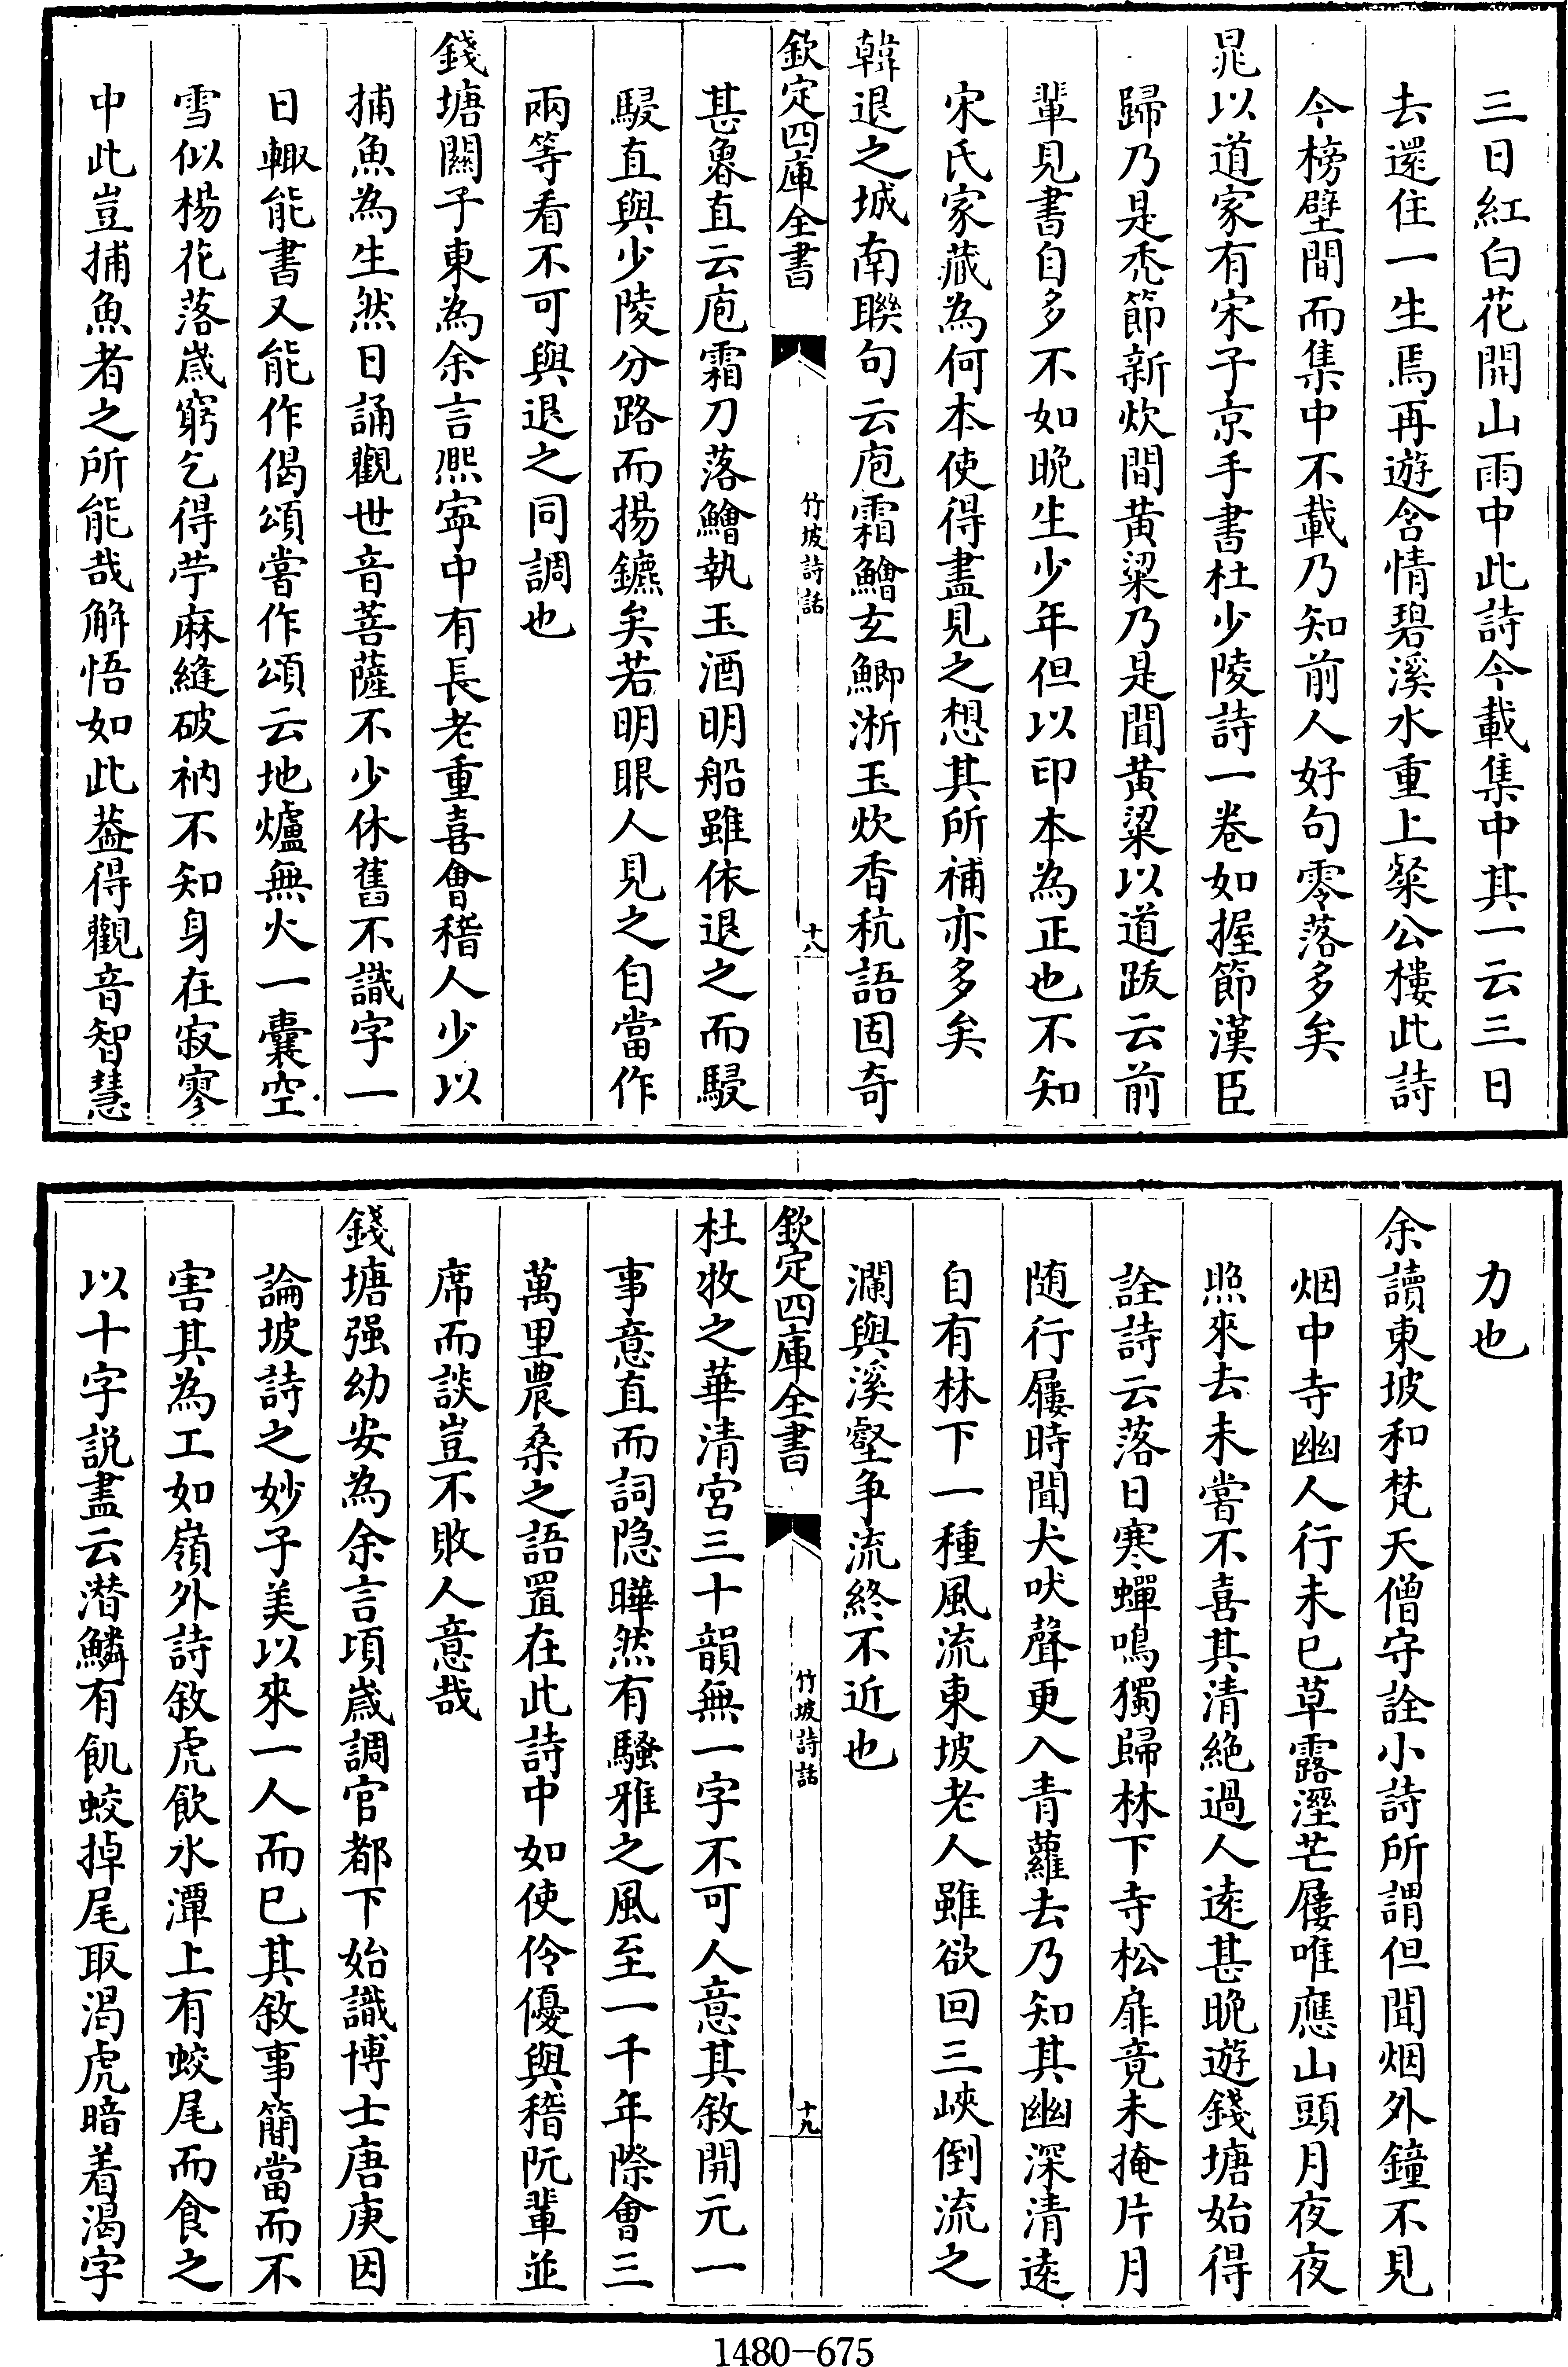 三日紅白花開山雨中此詩今載集中其一云三日
去還住一生焉再遊含情碧溪水重上粲公樓此詩
今榜壁間而集中不載乃知前人好句零落多矣
晁以道家有宋子京手書杜少陵詩一卷如握節漢臣
歸乃是禿節新炊間黄粱乃是聞黄粱以道跋云前
輩見書自多不如晚生少年但以印本為正也不知
宋氏家藏為何本使得盡見之想其所補亦多矣
韓退之城南聯句云庖霜鱠玄鯽淅玉炊香秔語固奇
欽定四庫全書
竹坡詩話
十八
甚魯直云庖霜刀落鱠執玉酒明船雖依退之而駸
駸直與少陵分路而揚鑣矣若明眼人見之自當作
兩等看不可與退之同調也
錢塘關子東為余言熈寧中有長老重喜會稽人少以
捕魚為生然日誦觀世音菩薩不少休舊不識字一
日輙能書又能作偈頌嘗作頌云地爐無火一囊空
雪似楊花落歲窮乞得苧麻縫破衲不知身在寂寥
中此豈捕魚者之所能哉解悟如此葢得觀音智慧
力也
余讀東坡和梵天僧守詮小詩所謂但聞烟外鐘不見
烟中寺幽人行未已草露溼芒屨唯應山頭月夜夜
照來去未嘗不喜其清絶過人逺甚晚遊錢塘始得
詮詩云落日寒蟬鳴獨歸林下寺松扉竟未掩片月
随行屨時聞犬吠聲更入青蘿去乃知其幽深清逺
自有林下一種風流東坡老人雖欲回三峽倒流之
瀾與溪壑争流終不近也
欽定四庫全書
竹坡詩話
十九
杜牧之華清宮三十韻無一字不可人意其敘開元一
事意直而詞隐曄然有騷雅之風至一千年際會三
萬里農桑之語置在此詩中如使伶優與嵇阮輩並
席而談豈不敗人意哉
錢塘强幼安為余言項歲調官都下始識博士唐庚因
論坡詩之妙子美以來一人而已其敘事簡當而不
害其為工如嶺外詩敘虎飲水潭上有蛟尾而食之
以十字説盡云潜鱗有飢蛟掉尾取渴虎暗着渴字
1480-675